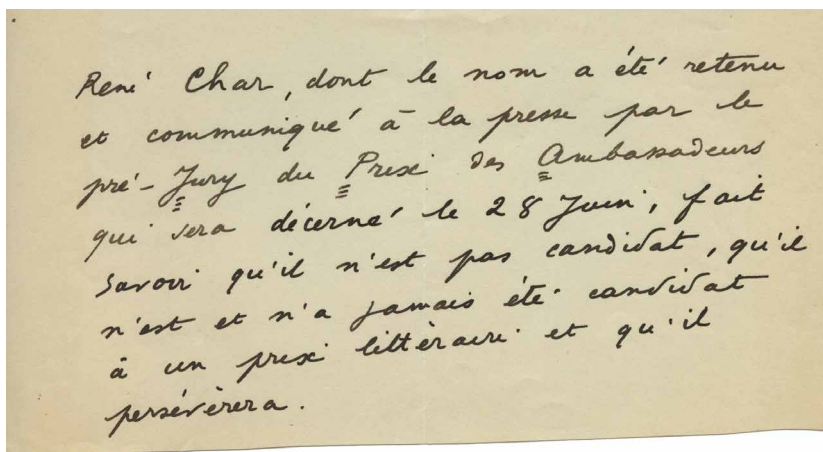 René Char, dont le nom a été retenu
et communiqué à la presse par le
pré-Jury du Prix des Ambassadeurs
qui sera décerné le 28 Juin, fait
savoir qu'il n'est pas candidat, qu'il
n'est et n'a jamais été candidat
à un prix littéraire et qu'il
persévèrera.